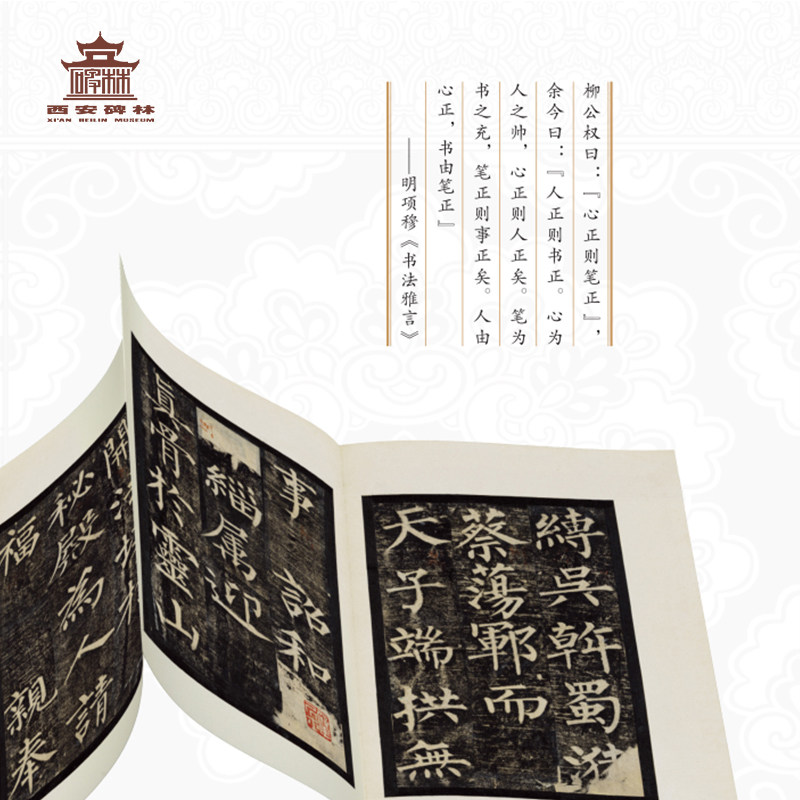 西安碑林
XI'AN BEILIN MUSEUM
柳公权曰：『心正则笔正』，
余今曰：『人正则书正。心为
人之帅，心正则人正矣。笔为
书之充，笔正则事正矣。人由
心正，书由笔正』
——明项穆《书法雅言》
縛吳斡蜀瀦
蔡蕩鄆而
天子端拱無
事 詔和
緇属迎
真骨於靈山
開法場於
秘殿為人請
福 親奉